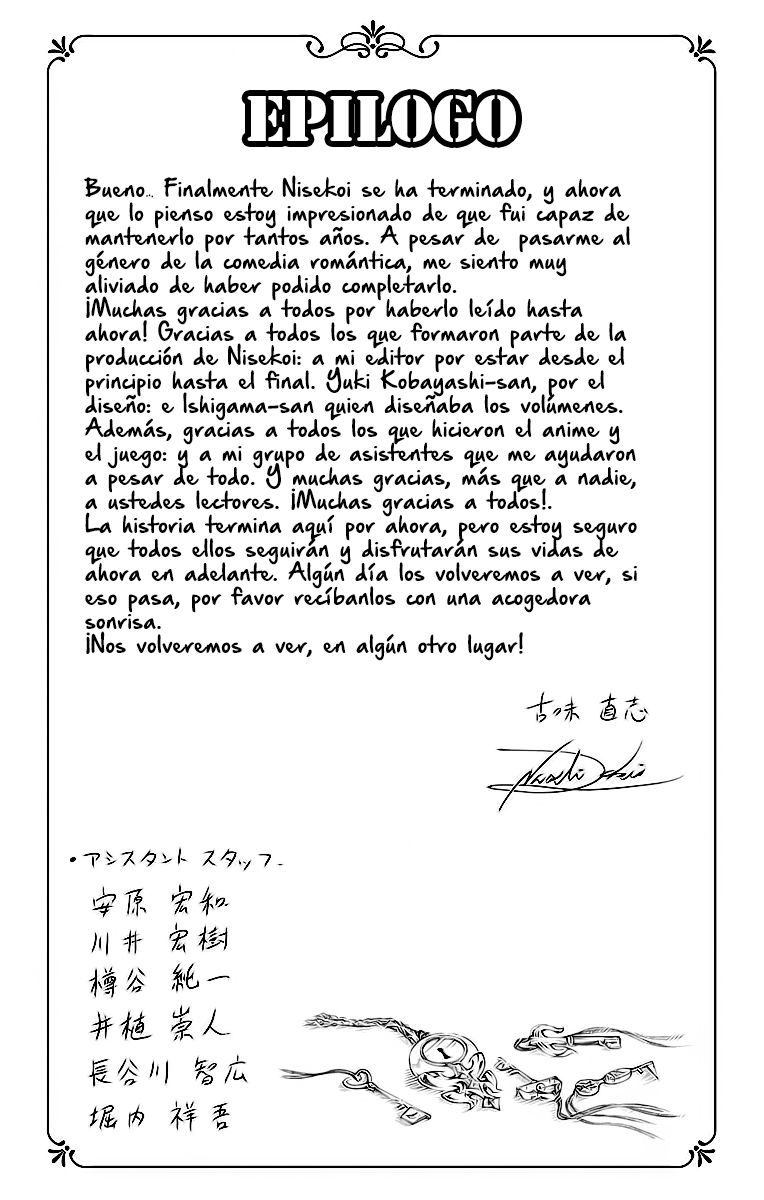 EPILOGO
Bueno... Finalmente Nisekoi se ha terminado, y ahora
que lo pienso estoy impresionado de que fui capaz de
mantenerlo por tantos años. A pesar de pasarme al
género de la comedia romántica, me siento muy
aliviado de haber podido completarlo.
¡Muchas gracias a todos por haberlo leído hasta
ahora! Gracias a todos los que formaron parte de la
producción de Nisekoi: a mi editor por estar desde el
principio hasta el final. Yuki Kobayashi-san, por el
diseño: e Ishigama-san quien diseñaba los volúmenes.
Además, gracias a todos los que hicieron el anime y
el juego: y a mi grupo de asistentes que me ayudaron
a pesar de todo. Y muchas gracias, más que a nadie,
a ustedes lectores. ¡Muchas gracias a todos!.
La historia termina aquí por ahora, pero estoy seguro
que todos ellos seguirán y disfrutarán sus vidas de
ahora en adelante. Algún día los volveremos a ver, si
eso pasa, por favor recíbanlos con una acogedora
sonrisa.
¡Nos volveremos a ver, en algún otro lugar!
古味 直志
・アシスタント スタッフ.
安原 宏和
川井 宏樹
樽谷 純一
井植 崇人
長谷川 智広
堀内 祥吾